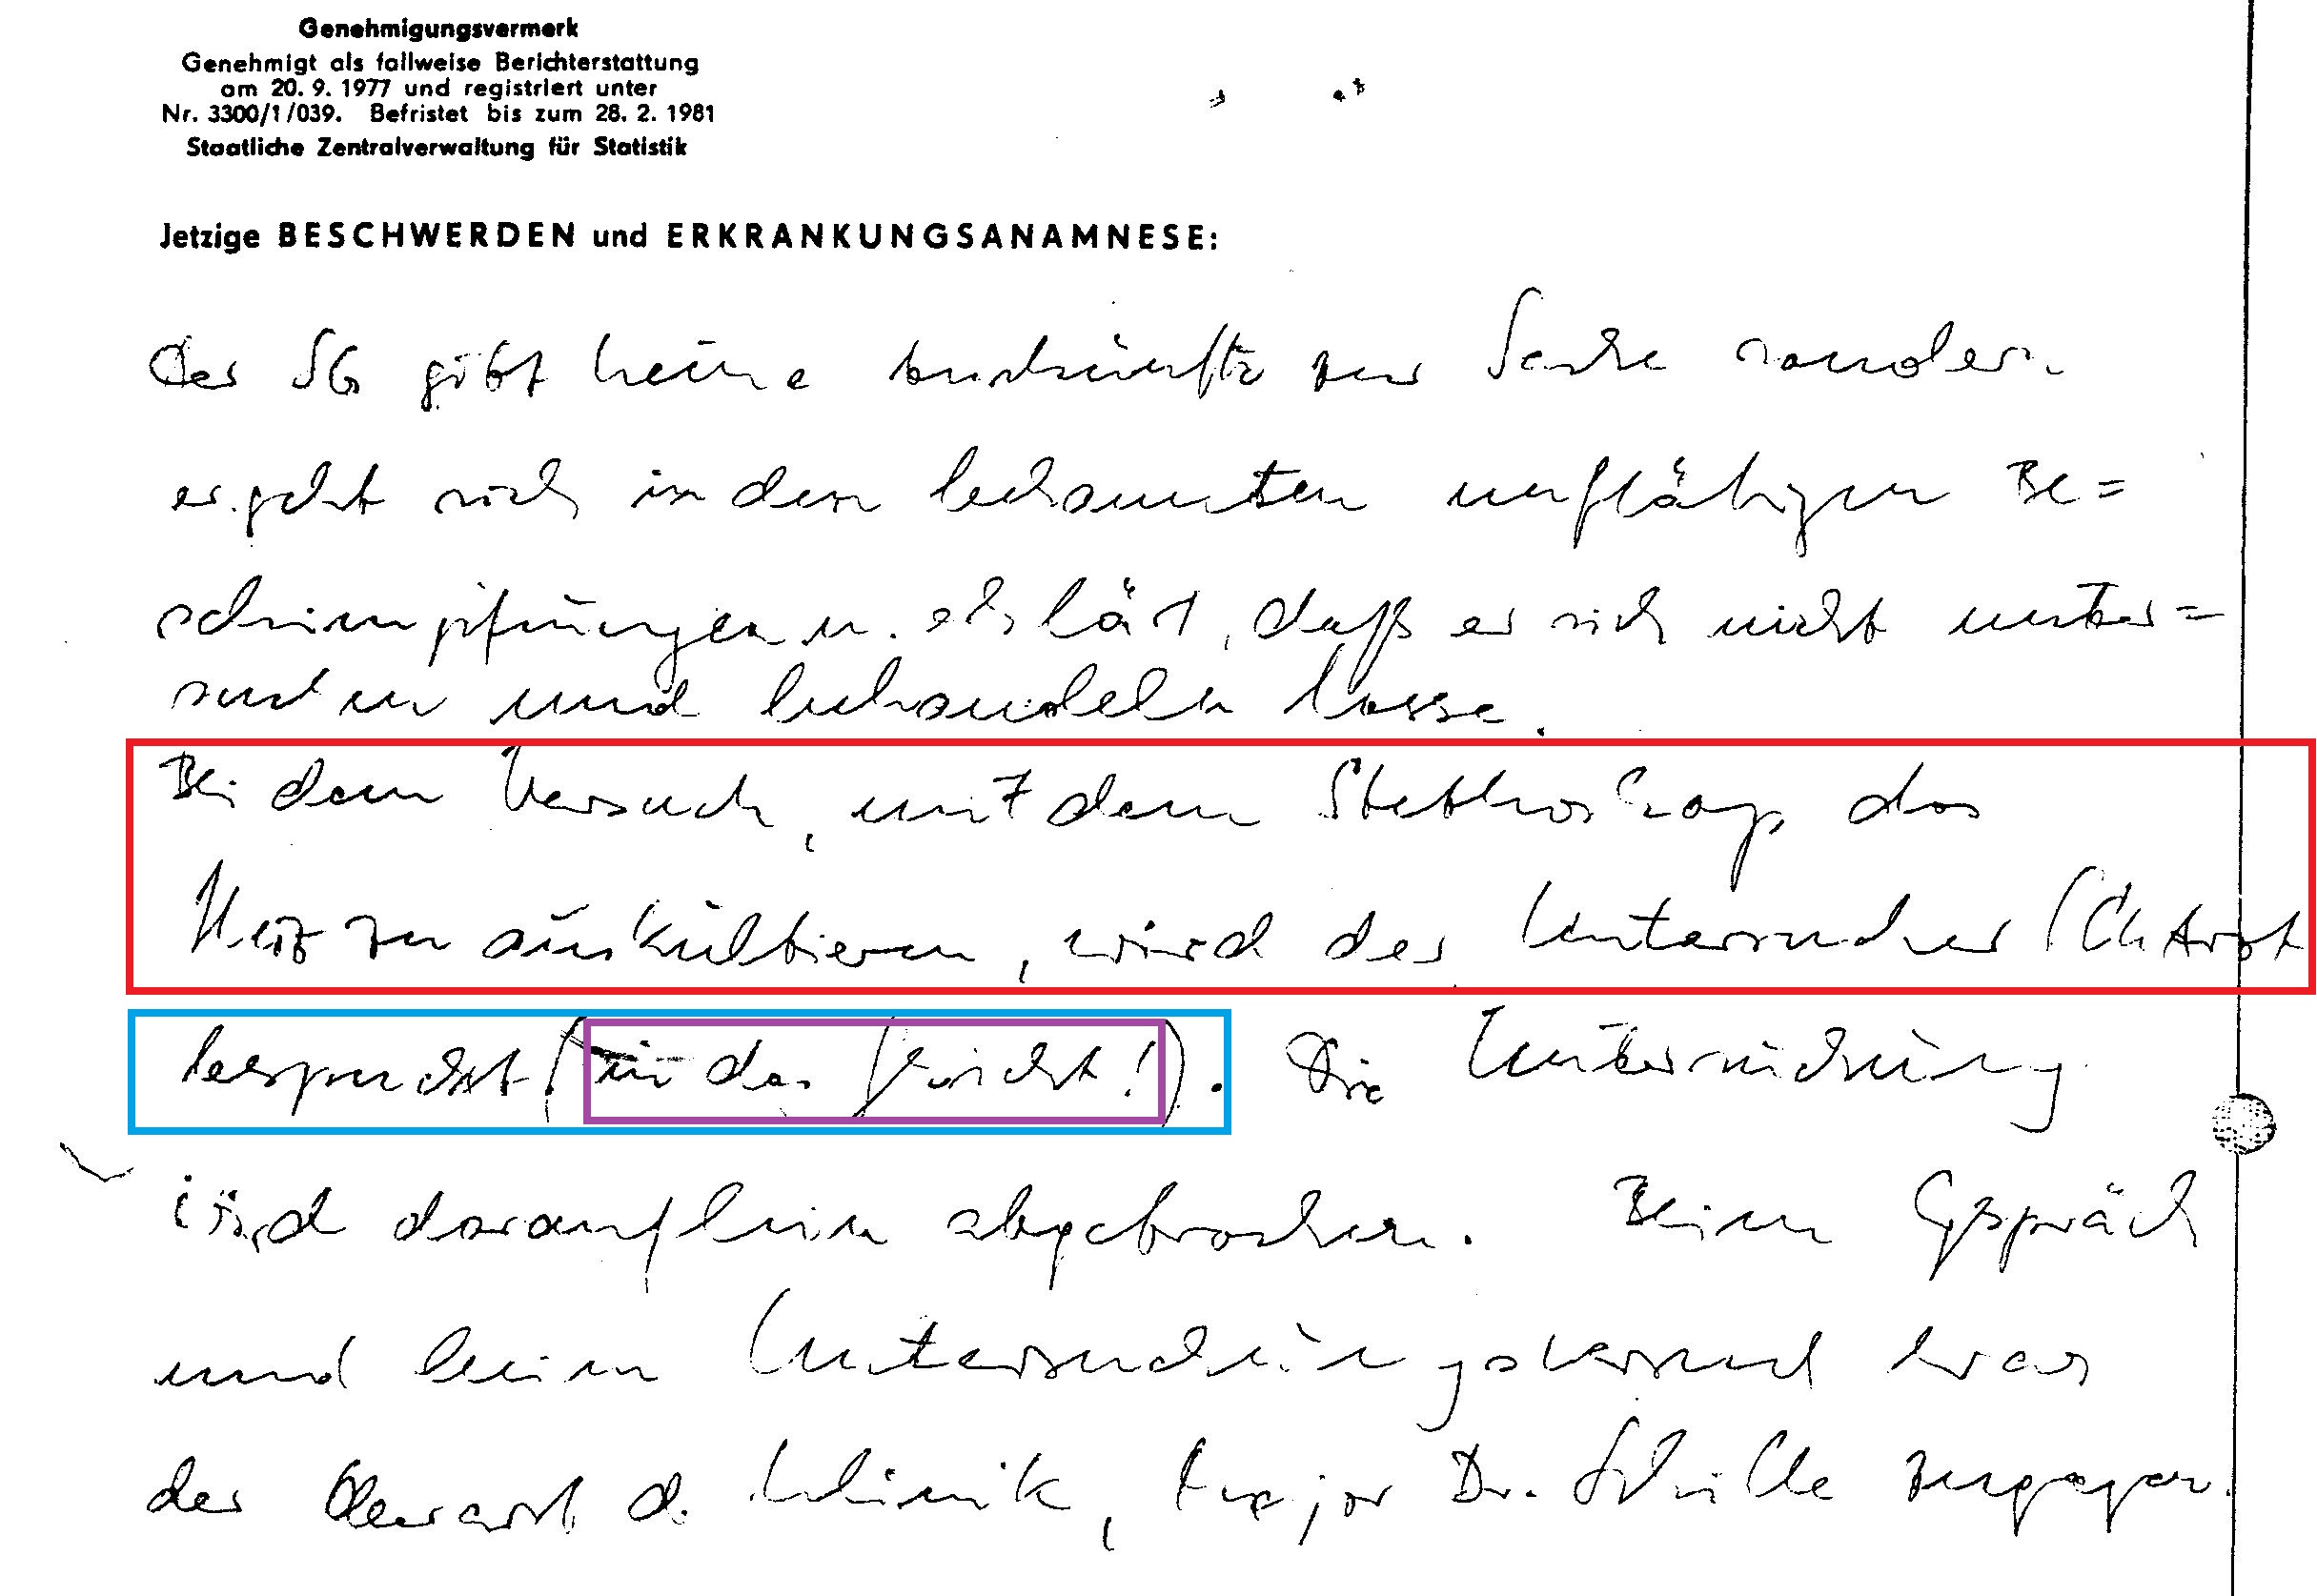 Genehmigungsvermerk
Genehmigt als fallweise Berichterstattung
am 20. 9. 1977 und registriert unter
Nr. 3300/1/039. Befristet bis zum 28. 2. 1981
Staatliche Zentralverwaltung für Statistik
Jetzige BESCHWERDEN und ERKRANKUNGSANAMNESE:
Der SG gibt keine Auskünfte zur Sache sondern
ergeht sich in den bekannten unflätigen Be=
schimpfungen u. erklärt, daß er sich nicht unter=
suchen und behandeln lasse.
Bei dem Versuch, mit dem Stethoskop das
Herz zu auskultieren, wird der Untersucher (ChArzt
bespuckt (in das Gesicht!). Die Untersuchung
wird daraufhin abgebrochen. Beim Gespräch
und beim Untersuchungsversuch war
der Oberarzt d. Klinik, Major Dr. zugegen.